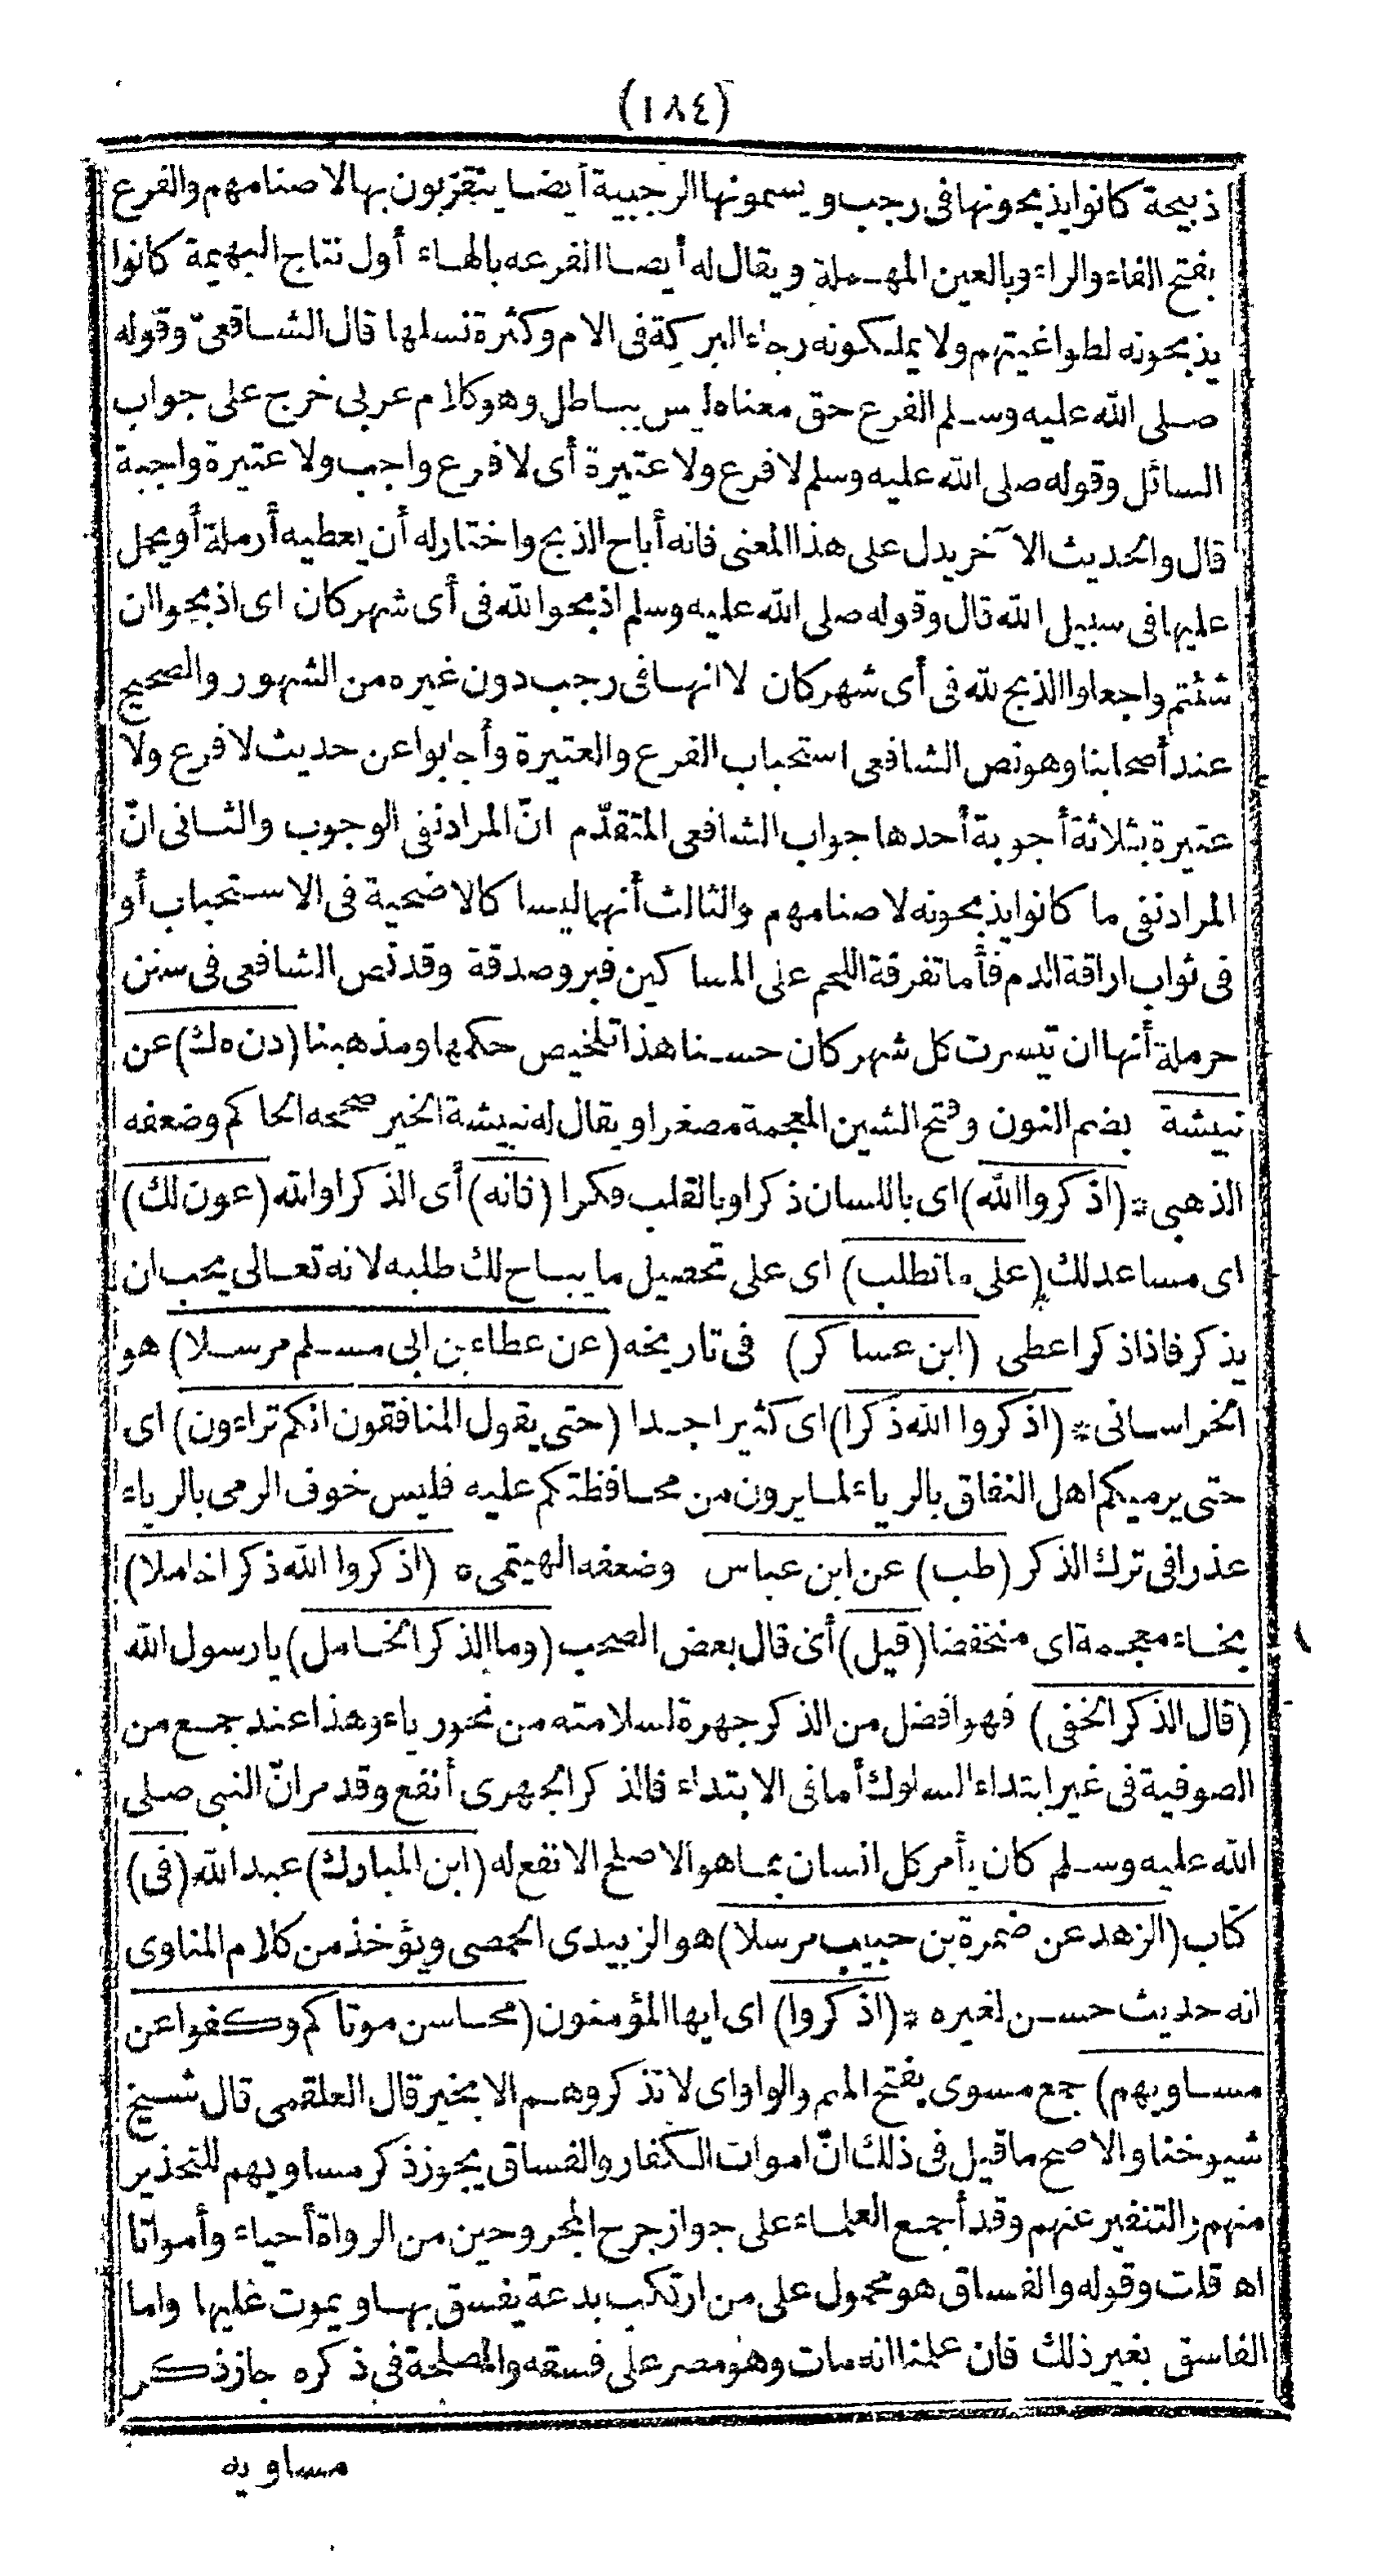 (١٨٤)
ذبيحة كانوا يذبحونها فى رجب ويسمونها الرجبية أيضا يتقرّبون بها لاصنامهم والفرع
بفتح الفاء والراء وبالعين المهملة ويقال له أيضا الفرعه بالهاء أول نتاج البهيمة كانوا
يذبحونه لطواغيتهم ولا يملكونه رجاء البركة فى الام وكثرة نسلها قال الشافعىّ وقوله
صلى الله عليه وسلم الفرع حق معناه ليس بباطل وهو كلام عربى خرج على جواب
السائل وقوله صلى الله عليه وسلم لا فرع ولا عتيرة أى لا فرع واجب ولا عتيرة واجبة
قال والحديث الآخر يدل على هذا المعنى فانه أباح الذبح واختار له أن يعطيه أرملة أو يحمل
عليها فى سبيل الله قال وقوله صلى الله عليه وسلم اذبحوا لله فى أى شهر كان اى اذبحوا ان
شئتم واجعلوا الذبح لله فى أى شهر كان لا انها فى رجب دون غيره من الشهور والصحيح
عند أصحابنا وهو نص الشافعى استحباب الفرع والعتيرة وأجابوا عن حديث لا فرع ولا
عتيرة بثلاثة أجوبة أحدها جواب الشافعى المتقدّم انّ المراد نفى الوجوب والثانى انّ
المراد نفى ما كانوا يذبحونه لاصنامهم والثالث أنهما ليسا كالاضحية فى الاستحباب أو
فى ثواب اراقة الدم فأما تفرقة اللحم على المساكين فبر وصدقة وقد نص الشافعى فى سنن
حرملة أنها ان تيسرت كل شهر كان حسنا هذا تلخيص حكمها ومذهبنا (دن ه ك) عن
نبيشة بضم النون وفتح الشين المعجمة مصغرا ويقال له نبيشة الخير صححه الحاكم وضعفه
الذهبى * (اذكروا الله) اى باللسان ذكرا وبالقلب فكرا (فانه) أى الذكر او الله (عون لك)
اى مساعد لك (على ما تطلب) اى على تحصيل ما يباح لك طلبه لانه تعالى يحب ان
يذكر فاذا ذكر اعطى (ابن عساكر) فى تاريخه (عن عطاء بن ابى مسلم مرسلا) هو
الخراسانى * (اذكروا الله ذكرا) اى كثيرا جدا (حتى يقول المنافقون انكم تراءون) اى
حتى يرميكم اهل النفاق بالرياء لما يرون من محافظتكم عليه فليس خوف الرمى بالرياء
عذرا فى ترك الذكر (طب) عن ابن عباس وضعفه الهيتمى * (اذكروا الله ذكرا خاملا)
بخاء معجمة اى منخفضا (قيل) أى قال بعض الصحب (وما الذكر الخامل) يا رسول الله
(قال الذكر الخفى) فهو افضل من الذكر جهرة لسلامته من نحو رياء وهذا عند جمع من
الصوفية فى غير ابتداء السلوك أما فى الابتداء فالذكر الجهرى أنفع وقد مر انّ النبى صلى
الله عليه وسلم كان يأمر كل انسان بما هو الاصلح الانفع له (ابن المبارك) عبد الله (فى)
كتاب (الزهد عن ضمرة بن حبيب مرسلا) هو الزبيدى الحمصى ويؤخذ من كلام المناوى
انه حديث حسن لغيره * (اذكروا) اى ايها المؤمنون (محاسن موتاكم وكفوا عن
مساويهم) جمع مسوى بفتح الميم والواو اى لا تذكروهم الا بخير قال العلقمى قال شيخ
شيوخنا والاصح ما قيل فى ذلك انّ اموات الكفار والفساق يجوز ذكر مساويهم للتحذير
منهم والتنفير عنهم وقد أجمع العلماء على جواز جرح المجروحين من الرواة أحياء وأمواتا
اه قلت وقوله والفساق هو محمول على من ارتكب بدعة يفسق بها ويموت عليها واما
الفاسق بغير ذلك فان علمنا انه مات وهو مصر على فسقه والمصلحة فى ذكره جاز ذكر
مساويه